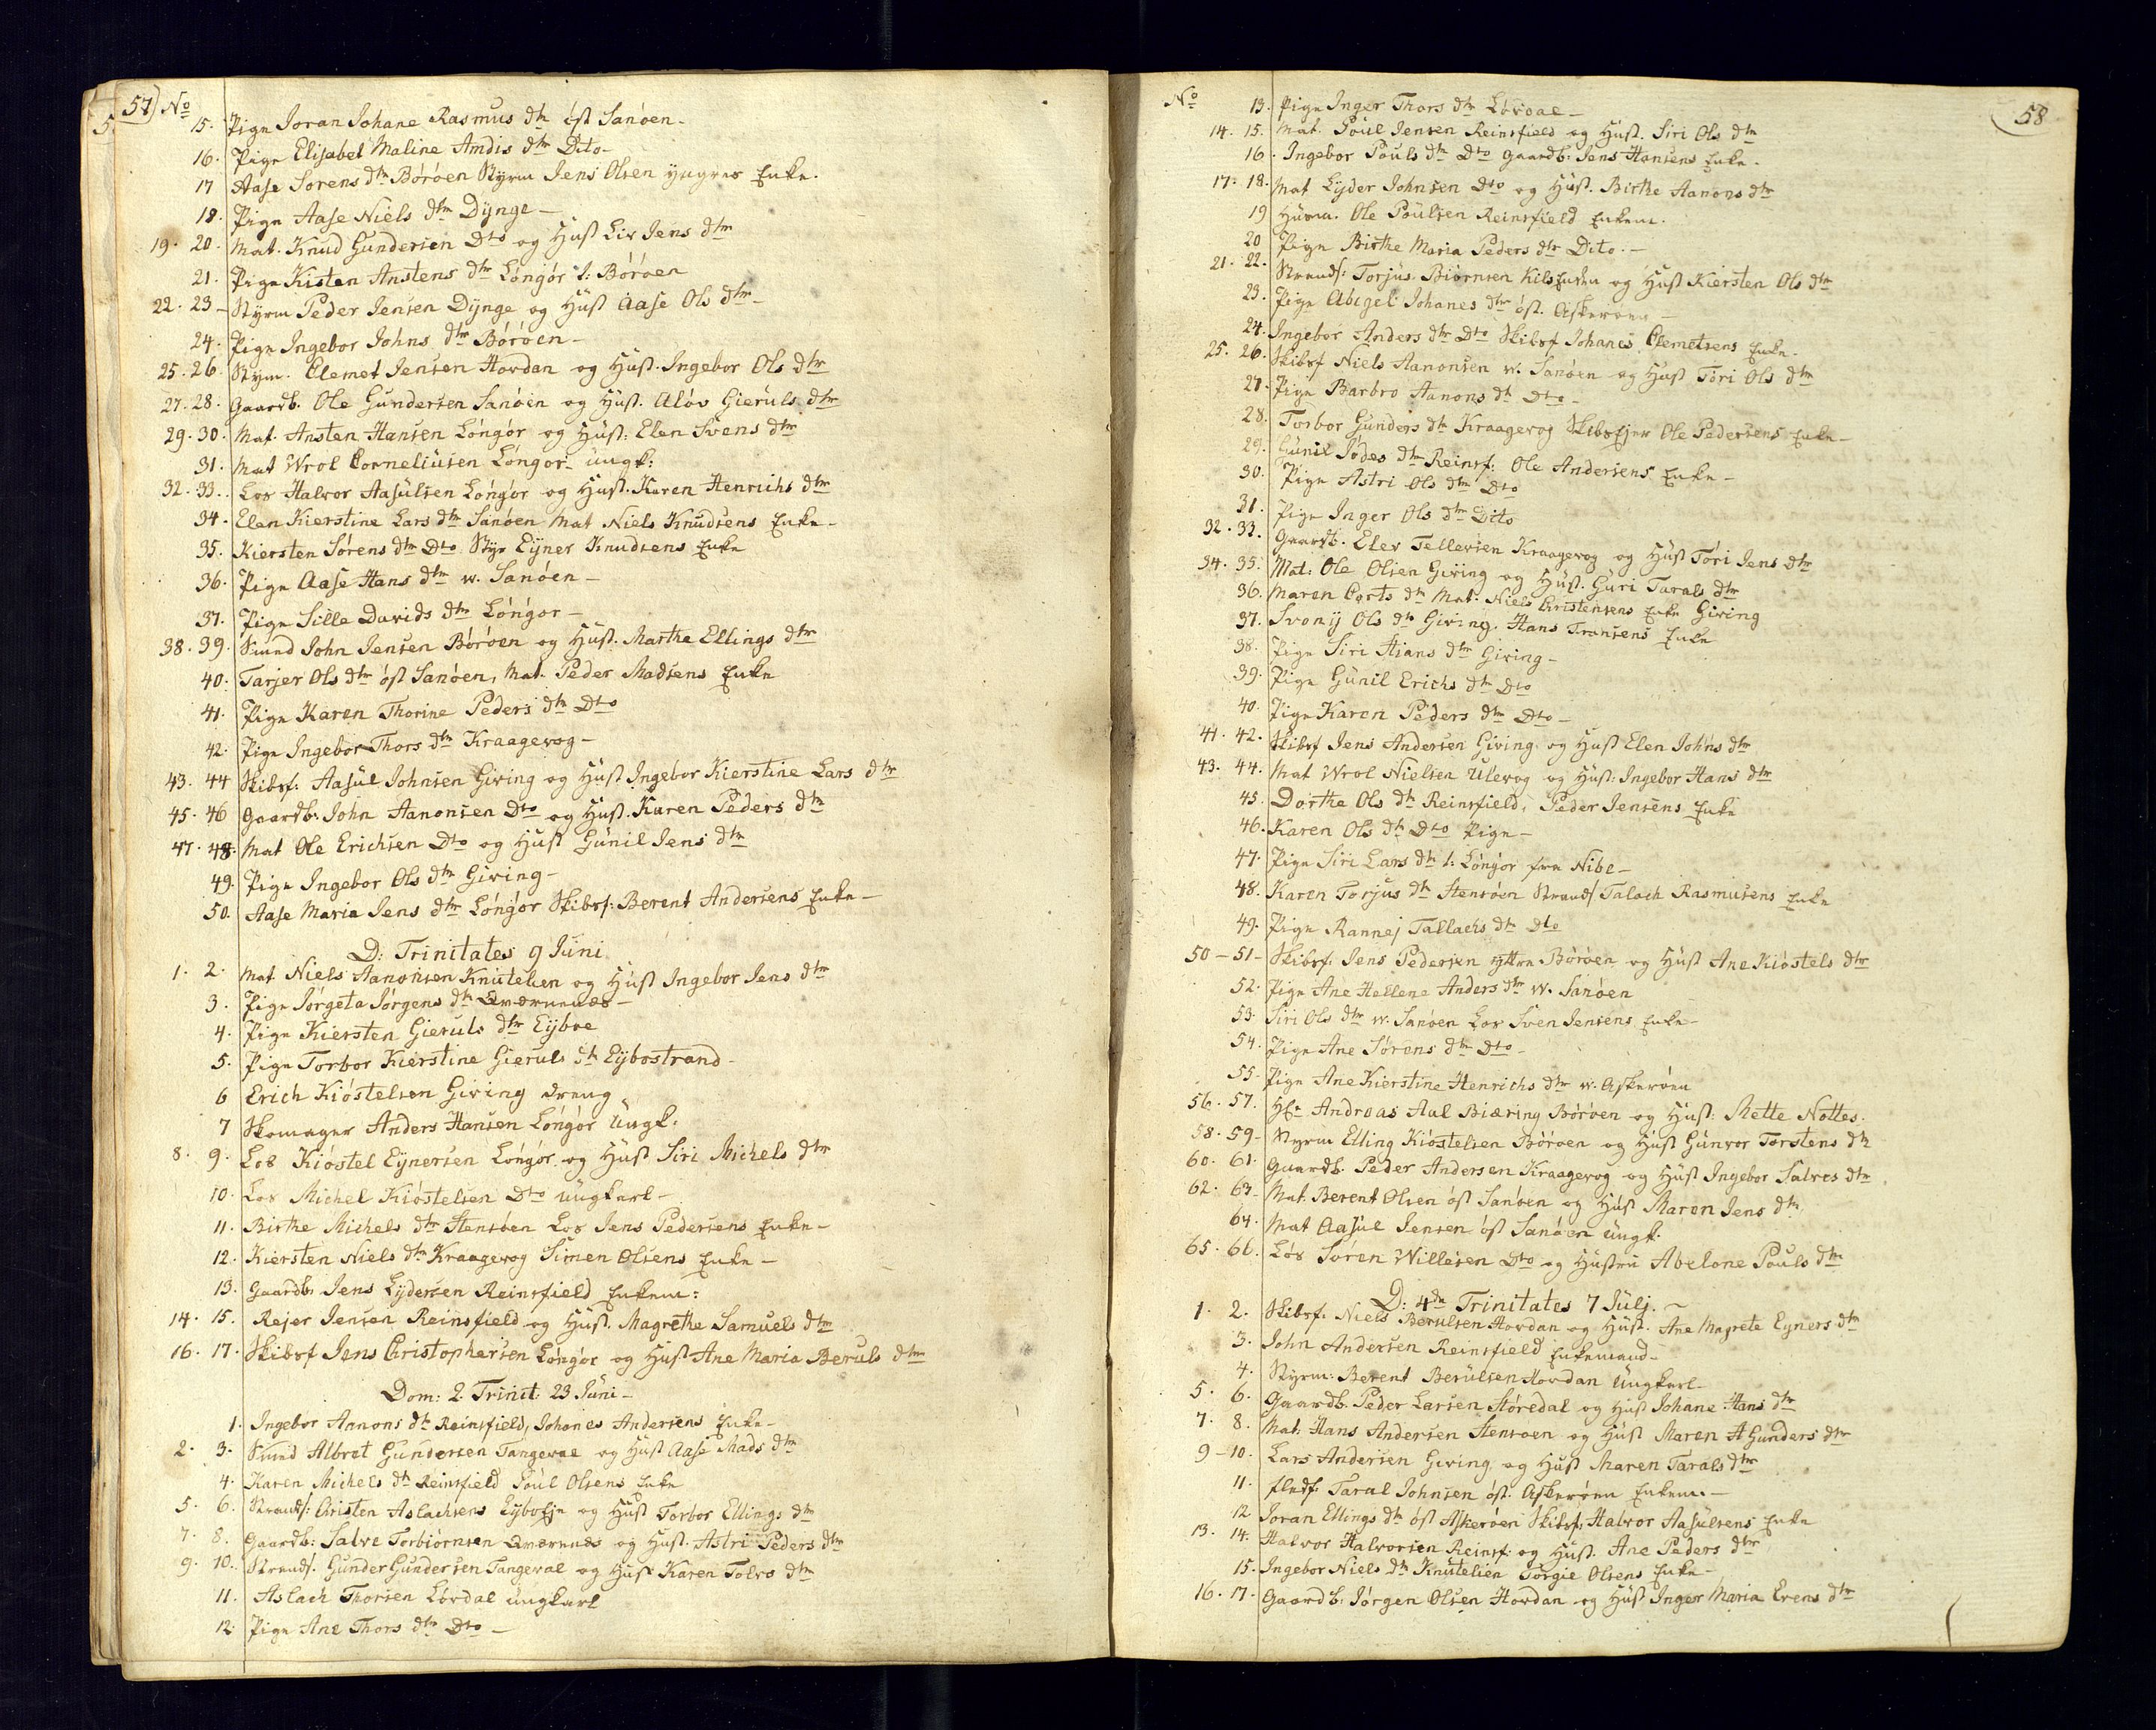 57) No
5
15. Pige Joran Johane Rasmus dtr öst Sanöen
16. Pige Elisabet Maline Andis dtr Dito
17 Aase Sörens dtr Böröen Styrm Jens Olsen yngres Enke.
18. Pige Aase Niels dtr Dynge
19. 20. Mat. Knud Gundersen Dto og Hust Liv Jens dtr
21. Pige Kisten Anstens dtr Löngör l: Böröen
22. 23 Styrm Peder Jensen Dynge og Hust Aase Ols dtr
24. Pige Ingebor Johns dtr Böröen
25. 26. Stym. Clemet Jensen Hovdan og Hust. Ingebor Ols dtr
27. 28. Gaardb. Ole Gundersen Sanöen og Hust. Alöv Gieruls dtr
29. 30. Mat. Ansten Hansen Löngör og Hust: Elen Svens dtr
31. Mat Wrol Corneliusen Löngor. ungk:
32. 33. Los Halvor Aasulsen Löngör og Hust. Karen Henrichs dtr
34. Elen Kierstine Lars dtr Sanöen Mat Niels Knudsens Enke
35. Kiersten Sörens dtr Dto Styr Eyner Knudsens Enke
36. Pige Aase Hans dtr w. Sanöen
37. Pige Sille Davids dtr Löngor
38. 39. Smed John Jensen Böröen og Hust. Marthe Ellings dtr
40. Tarjer Ols dtr öst Sanöen, Mat. Peder Madsens Enke
41. Pige Karen Thorine Peders dtr Dto
42. Pige Ingebor Thors dtr Kraagevog
43. 44 Skibsf: Aasul Johnsen Giving og Hust Ingebor Kierstine Lars dtr
45. 46 Gaardb: John Aanonsen Dto og Hust. Karen Peders dtr
47. 48. Mat Ole Erichsen Dto og Hust Gunil Jens dtr
49. Pige Ingebor Ols dtr Giving
50. Aase Maria Jens dtr Löngör Skibsf: Berent Andersens Enke
D: Trinitates 9 Juni
1. 2. Mat Niels Aanonsen Knutelien og Hust Ingebor Jens dtr
3. Pige Jörgeta Jörgens dtr Qwærnenæs
4. Pige Kiersten Gieruls dtr Eyboe
5. Pige Torbor Kierstine Gieruls dtr Eybostrand
6 Erich Kiöstelsen Giving dreng
7 Skomager Anders Hansen Löngör Ungk.
8. 9. Los Kiöstel Eynersen Löngör og Hust Siri Michels dtr
10. Los Michel Kiöstelsen Dto ungkarl
11. Birthe Michels dtr Stensöen Los Jens Pedersens Enke
12. Kiersten Niels dtr Kraagevog Simen Olsens Enke
13. Gaardb. Jens Lydersen Reinsfield Enkem:
14. 15. Rejer Jensen Reinsfield og Hust. Magrethe Samuels dtr
16. 17. Skibsf Jens Christophersen Löngör og Hust Ane Maria Beruls dtr
Dom: 2. Trinit: 23 Juni
1. Ingebor Aanons dtr Reinsfield, Johanes Andersens Enke
2. 3. Smed Albret Gundersen Tangeval og Hust Aase Mads dtr
4. Karen Michels dtr Reinsfield Poul Olsens Enke
5. 6. Strands: Christen Aslachsens Eyboeje og Hust Torbor Ellings dtr
7. 8. Gaardb: Salve Torbiörnsen Qwærnnæs og Hust. Astri Peders dtr
9. 10. Strands. Gunder Gundersen Tangeval og Hust Karen Tolvs dtr
11. Aslach Thorsen Lövdal ungkarl
12. Pige Ane Thors dtr Dto
No
58
13. Pige Inger Thors dtr Lövdal
14. 15. Mat. Poul Jensen Reinsfield og Hust. Siri Ols dtr
16. Ingebor Pouls dtr Dto Gaardb: Jens Hansens Enke.
17. 18. Mat Lyder Johnsen Dto og Hust. Birthe Aanons dtr
19 Husm. Ole Poulsen Reinsfield Enkem.
20 Pige Birthe Maria Peders dtr Dito.
21. 22. Strands: Torjus Biörnsen og Hust Kiersten Ols dtr
23. Pige Abigel Johanes dtr öst. Askeröen
24. Ingebor Anders dtr Dto Skibsf Johanes Clemetsens Enke.
25. 26. Skibsf Niels Aanonsen w. Sanöen og Hust Töri Ols dtr
27. Pige Barbro Aanons dtr Dto
28. Torbor Gunders dtr Kraagevog Skibsejer Ole Pedersens Enke
29. Gunil Södes dtr Reinsf: Ole Andersens Enke
30. Pige Astri Ols dtr Dto
31. Pige Inger Ols dtr Dito
32. 33. Gaardb. Elev Tellevsen Kraagevog og Hust Töri Jens dtr
34. 35. Mat: Ole Olsen Giving og Hust. Guri Tarals dtr
36. Maren Corts dtr Mat: Niels Christensens Enke Giving
37. Svonij Ols dtr Giving. Hans Fransens Enke
38. Pige Siri Hans dtr Giving
39. Pige Gunil Erichs dtr Dto
40. Pige Karen Peders dtr Dto
41. 42. Skibsf Jens Andersen Giving og Hust Elen Johns dtr
43. 44. Mat Wrol Nielsen Ulevog og Hust: Ingebor Hans dtr
45. Dorthe Ols dtr Reinsfield, Peder Jensens Enke
46. Karen Ols dtr Dto Pige
47. Pige Siri Lars dtr l: Löngör fra Nibe
48. Karen Torjus dtr Stensöen Strands Talach Rasmusens Enke
49. Pige Rannej Tallachs dtr Dto
50 - 51 Skibsf. Jens Pedersen yttre Böröen og Hust Ane Kiöstels dtr
52. Pige Ane Hellene Anders dtr W. Sanöen
53. Siri Ols dtr w. Sanöen Los Sven Jensens Enke
54. Pige Ane Sörens dtr Dto
55. Pige Ane Kierstine Henrichs dtr w. Askeröen
56. 57. Hr Andreas Aal Biæring Böröen og Hust: Mette Nottes.
58. 59 Styrm Elling Kiöstelsen Böröen og Hust Gunvor Torstens dtr
60. 61. Gaardb. Peder Andersen Kraagevog og Hust Ingebor Salves dtr
62. 63 Mat. Berent Olsen öst Sanöen og Hust Maren Jens dtr
64. Mat Aasul Jensen öst Sanöen Ungk.
65. 66. Los Sören Willesen Dto og Hustru Abelone Pouls dtr
D: 4de Trinitates 7 Julj.
1. 2. Skibsf. Niels Berulsen Hovdan og Hust. Ane Magrete Eyners dtr
3. John Andersen Reinsfield Enkemand
4. Styrm: Berent Berulsen Hovdan Ungkarl
5. 6. Gaardb. Peder Larsen Störedal og Hust Johane Hans dtr
7. 8. Mat. Hans Andersen Stensöen og Hust Maren Gunders dtr
9 - 10. Lars Andersen Giving og Hust Maren Tarals dtr
11. Taral Johnsen öst. Askeröen Enkem.
12 Joran Ellings dtr öst Askeröen Skibsf: Halvor Aasulsens Enke
13. 14. Halvor Halvorsen Reinsf. og Hust. Ane Peders dtr
15. Ingebor Niels dtr Knutelien Torgie Olsens Enke
16. 17. Gaardb: Jörgen Olsen Hovdan og Hust Inger Maria Evens dtr